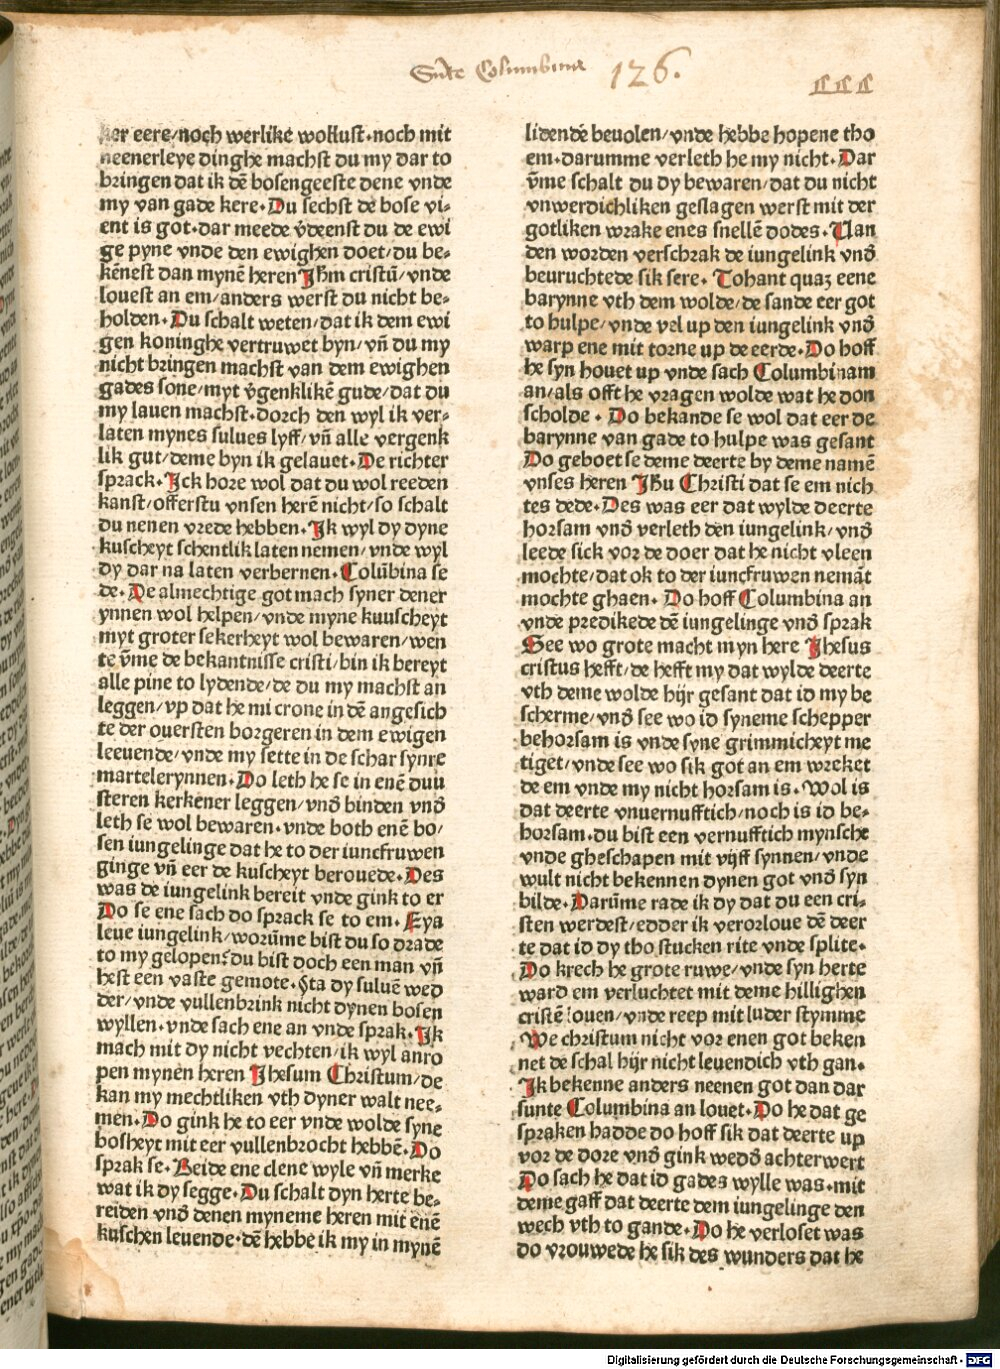 Sūte Columbina 126.
ker eere/noch werlike wollust·noch mit
neenerleye dinghe machst du my dar to
bringen dat ik dē bosengeeste dene vnde
my van gade kere·Du sechst de bose vi-
ent is got·dar meede v̄deenst du de ewi
ge pyne vnde den ewighen doet/du be-
kēnest dan mynē heren Jhm cristū/vnde
louest an em/anders werst du nicht be-
holden·Du schalt weten/dat ik dem ewi
gen koninghe vertruwet byn/vn̄ du my
nicht bringen machst van dem ewighen
gades sone/myt v̄genklikē gude/dat du
my lauen machst·dorch den wyl ik ver-
laten mynes sulues lyff/vn̄ alle vergenk
lik gut/deme byn ik gelauet·De richter
sprack·Ick hore wol dat du wol reeden
kanst/offerstu vnsen herē nicht/so schalt
du nenen vrede hebben·Ik wyl dy dyne
kuscheyt schentlik laten nemen/vnde wyl
dy dar na laten verbernen·Colūbina se
de·De almechtige got mach syner dener
ynnen wol helpen/vnde myne kuuscheyt
myt groter sekerheyt wol bewaren/wen
te v̄me de bekantnisse cristi/bin ik bereyt
alle pine to lydende/de du my machst an
leggen/vp dat he mi crone in dē angesich
te der ouersten borgeren in dem ewigen
leeuende/vnde my sette in de schar synre
martelerynnen·Do leth he se in enē duu
steren kerkener leggen/vnd̄ binden vnd̄
leth se wol bewaren·vnde both enē bo/
sen iungelinge dat he to der iuncfruwen
ginge vn̄ eer de kuscheyt berouede·Des
was de iungelink bereit vnde gink to er
Do se ene sach do sprack se to em·Eya
leue iungelink/worūme bist du so drade
to my gelopen?du bist doch een man vn̄
hest een vaste gemote·Sta dy suluē wed
der/vnde vullenbrink nicht dynen bosen
wyllen·vnde sach ene an vnde sprak·Ik
mach mit dy nicht vechten/ik wyl anro
pen mynen heren Jhesum Christum/de
kan my mechtliken vth dyner walt nee-
men·Do gink he to eer vnde wolde syne
bosheyt mit eer vullenbrocht hebbē·Do
sprak se·Beide ene clene wyle vn̄ merke
wat ik dy segge·Du schalt dyn herte be-
reiden vnd̄ denen myneme heren mit enē
kuschen leuende·dē hebbe ik my in mynē
lidendē beuolen/vnde hebbe hopene tho
em·darumme verleth he my nicht·Dar
v̄me schalt du dy bewaren/dat du nicht
vnwerdichliken geslagen werst mit der
gotliken wrake enes snellē dodes·Uan
den worden verschrak de iungelink vnd̄
beuruchtede sik sere·Tohant quaz eene
barynne vth dem wolde/de sande eer got
to hulpe/vnde vel up den iungelink vnd̄
warp ene mit torne up de eerde·Do hoff
he syn houet up vnde sach Columbinam
an/als offt he vragen wolde wat he don
scholde·Do bekande se wol dat eer de
barynne van gade to hulpe was gesant
Do geboet se deme deerte by deme namē
vnses heren Jhu Christi dat se em nich
tes dede·Des was eer dat wylde deerte
horsam vnd̄ verleth den iungelink/vnd̄
leede sick vor de doer dat he nicht vleen
mochte/dat ok to der iuncfruwen nemāt
mochte ghaen·Do hoff Columbina an
vnde predikede dē iungelinge vnd̄ sprak
See wo grote macht myn here Jhesus
cristus hefft/de hefft my dat wylde deerte
vth deme wolde hijr gesant dat id my be
scherme/vnd̄ see wo id syneme schepper
behorsam is vnde syne grimmicheyt me
tiget/vnde see wo sik got an em wreket
de em vnde my nicht horsam is·Wol is
dat deerte vnuernufftich/noch is id be-
horsam·du bist een vernufftich mynsche
vnde gheschapen mit vijff synnen/vnde
wult nicht bekennen dynen got vnd̄ syn
bilde·Darūme rade ik dy dat du een cri-
sten werdest/edder ik verorloue dē deer
te dat id dy tho stucken rite vnde splite·
Do krech he grote ruwe/vnde syn herte
ward em verluchtet mit deme hillighen
cristē louen/vnde reep mit luder stymme
We christum nicht vor enen got beken
net de schal hijr nicht leuendich vth gan·
Ik bekenne anders neenen got dan dar
sunte Columbina an louet·Do he dat ge
spraken hadde do hoff sik dat deerte up
vor de dore vnd̄ gink wedd̄ achterwert
Do sach he dat id gades wylle was·mit
deme gaff dat deerte dem iungelinge den
wech vth to gande·Do he verloset was
do vrouwede he sik des wunders dat he
Digitalisierung gefördert durch die Deutsche Forschungsgemeinschaft - DFG